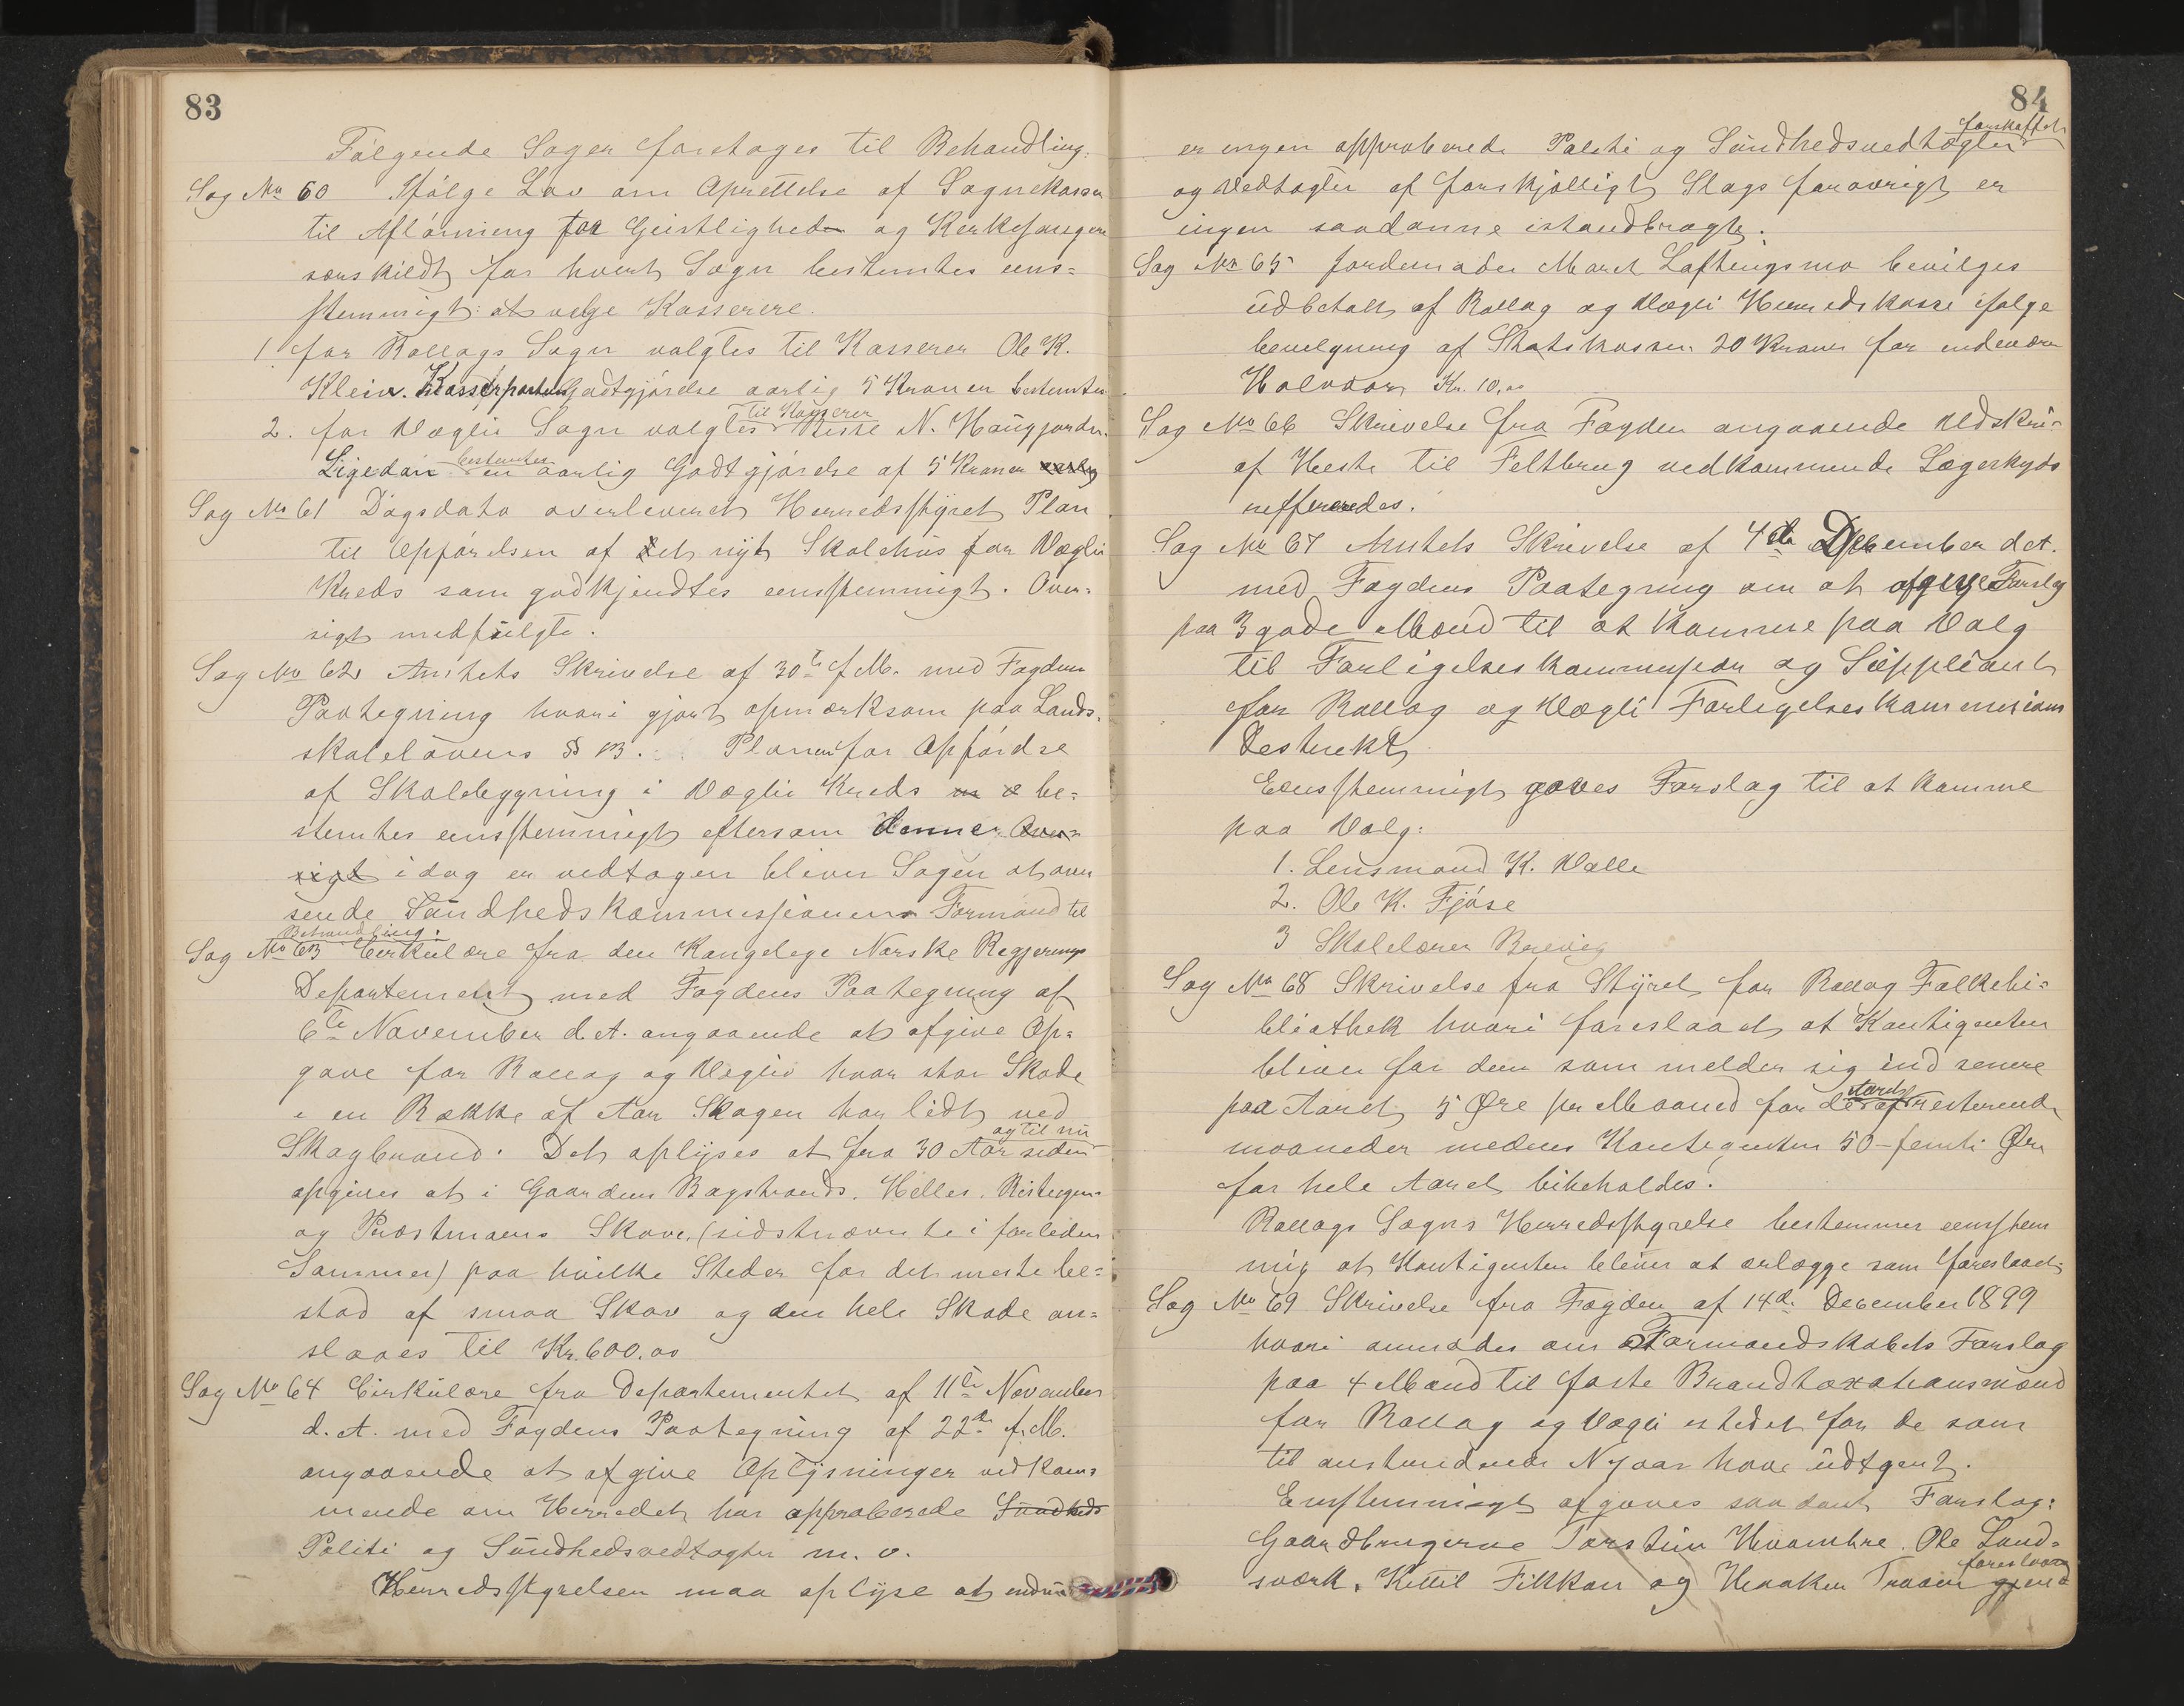 83
Følgende Sager foretoges til Behandling:
Sag No 60 Ifølge Lov om Oprettelse af Sognekasser
til Aflønning for Geistligheden og Kirkesangere
særskildt for hvert Sogn bestemtes eens=
stemmigt at velge Kasserere.
1 for Rollags Sogn valgtes til Kasserer Ole K.
Klein. Godtgjørelse aarlig 5 Kroner bestemtes
til Kasserer
2. for Væglii Sogn valgtes Bisse N. Haugjordn.
bestemtes
Ligedan en aarlig Godtgjørelse af 5 Kroner
Sag No 61 Dagsdato overleveret Herredsstyret Plan
til Opførelsen af et nyt Skolehus for Væglii
Kreds som godkjendtes eensstemmigt. Over=
sigt medfulgte.
Sag No 62 Amtets Skrivelse af 30te f.M. med Fogdens
Paategning hvori gjort opmærksom paa Lands=
skolelovens § 13. Planen for Opførelse
af Skolebygning i Væglii Kreds be=
stemtes eensstemmigt eftersom denne Over=
sigt idag er vedtagen bliver Sagen at over
sende Sundhedskommissionens Formand til
Behandling.
Sag No 63 Cirkulære fra den Kongelige Norske Regjerings
Departement med Fogdens Paategning af
6te November d.A. angaaende at afgive Op=
gave for Rollag og Væglii hvor stor Skade
i en Række af Aar Skogen har lidt ved
og til nu
Skogbrand. Det oplyses at fra 30 Aar siden
opgives at i Gaardene Bagstrands, Helles,
og Præstmoens Skove, (sidstnævnte i forleden
Sommer) paa hvilke Steder for det meste be=
stod af smaa Skov og den hele Skade an=
slaaes til Kr. 600.00
Sag No 64 Cirkulære fra Departementet af 11te November
d. A. med Fogdens Paategning af 22de f.M.
angaaende at afgive Oplysninger vedkom=
mende om Herredet har approberede Sundheds
Politi og Sundhedsvedtægter m. v.
Herredsstyrelsen maa oplyse at endnu
84
forskaffet
er ingen approberede Politi og Sundhedsvedtægter
og Vedtægter af forskjelligt Slags forøvrigt er
ingen saadanne istandbragte.
Sag No 65 Jordemoder Maret Loftengsmo bevilges
udbetalt af Rollag og Vægli Herredskasse ifølge
bevilgning af Skatskassen 20 Kroner for indeværn
Halvaar Kr. 10,00
Sag No 66 Skrivelse fra Fogden angaaende Udskri=
af Heste til Feltbrug vedkommende Lægerkyds
refferredes.
Sag No 67 Amtets Skrivelse af 4de December d.A.
med Fogdens Paategning om at afgive Forslag
paa 3 gode Mænd til at komme paa Valg
til Forligelseskommisær og Suppliant
for Rollag og Vægli Forligelseskommissions
Destrikt
Eensstemmigt gaves Forslag til at komme
paa Valg:
1. Lensmand K. Valle
2. Ole K. Fjøse
3 Skolelærer Brevig
Sag No 68 Skrivelse fra Styret for Rollag Folkebi=
bliothek hvori foreslaaet at Kontigenten
bliver for dem som melder sig ind senere
Aaret
paa Aaret 5 Øre per Maaned for de af resterende
maaneder medens Kontigenten 50 – femti Øre
for hele Aaret bibeholdes.
Rollags Sogns Herredsstyrelse bestemmer eensstem
mig at Kontigenten bliver at erlægge som foreslaaet
Sag No 69 Skrivelse fra Fogden af 14de December 1899
hvori anmodes om Formandskabets Forslag
paa 4 Mand til faste Brandtaxationsmænd
for Rollag og Vægli istedet for de som
til anstundende Nyaar have udtgent.
Eenstemmigt afgaves saadant Forslag:
Gaardbrugerne Torstein Hvambre, Ole Sand=
foreslaaes
sværk, Kittil Fikkan og Haaken Traaen